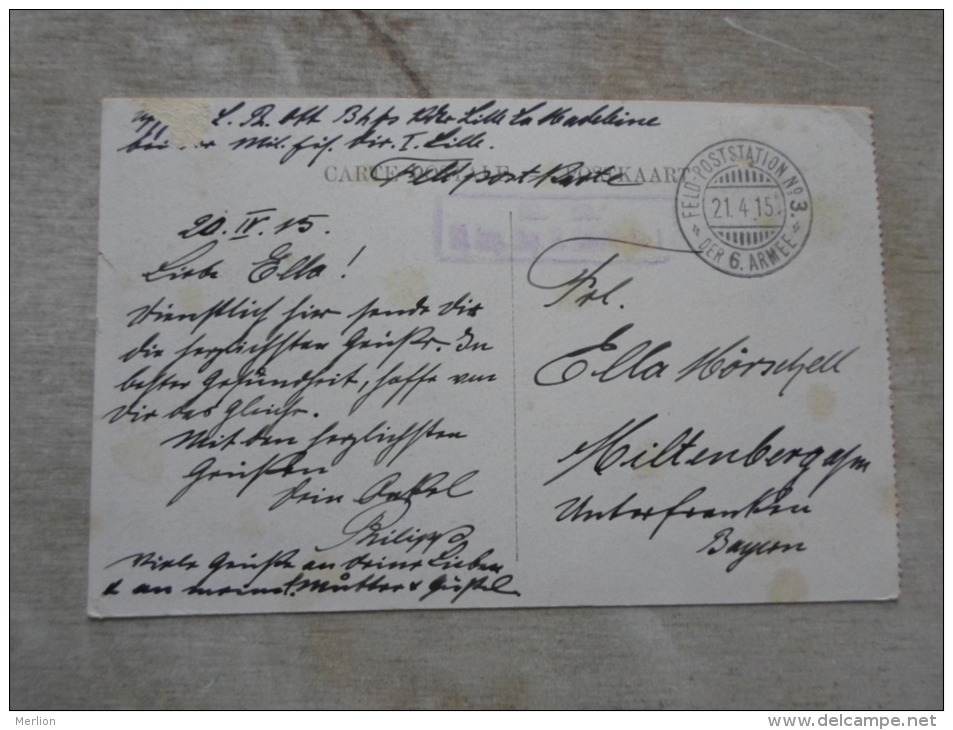 L. R. Ott Bhfs Lille La Madeleine
Mil. Eis. Dir. I. Lille.
CARTE POSTALE POSTKAART
Feldpostkarte
FELD-POSTSTATION Nº 3.
21.4.15
DER 6. ARMEE
20. IV. 15.
Liebe Ella!
Dienstlich hier sende Dir
die herzlichsten Grüße. In
bester Gesundheit, hoffe von
Dir das Gleiche.
Mit den herzlichsten
Grüßen
Dein Onkel
Philipp
Viele Grüße an Deine Lieben
& an meine Mutter & Gustel
Frl.
Ella Hörschell
Miltenberg a/m
Unterfranken
Bayern
Merlion
www.delcampe.net